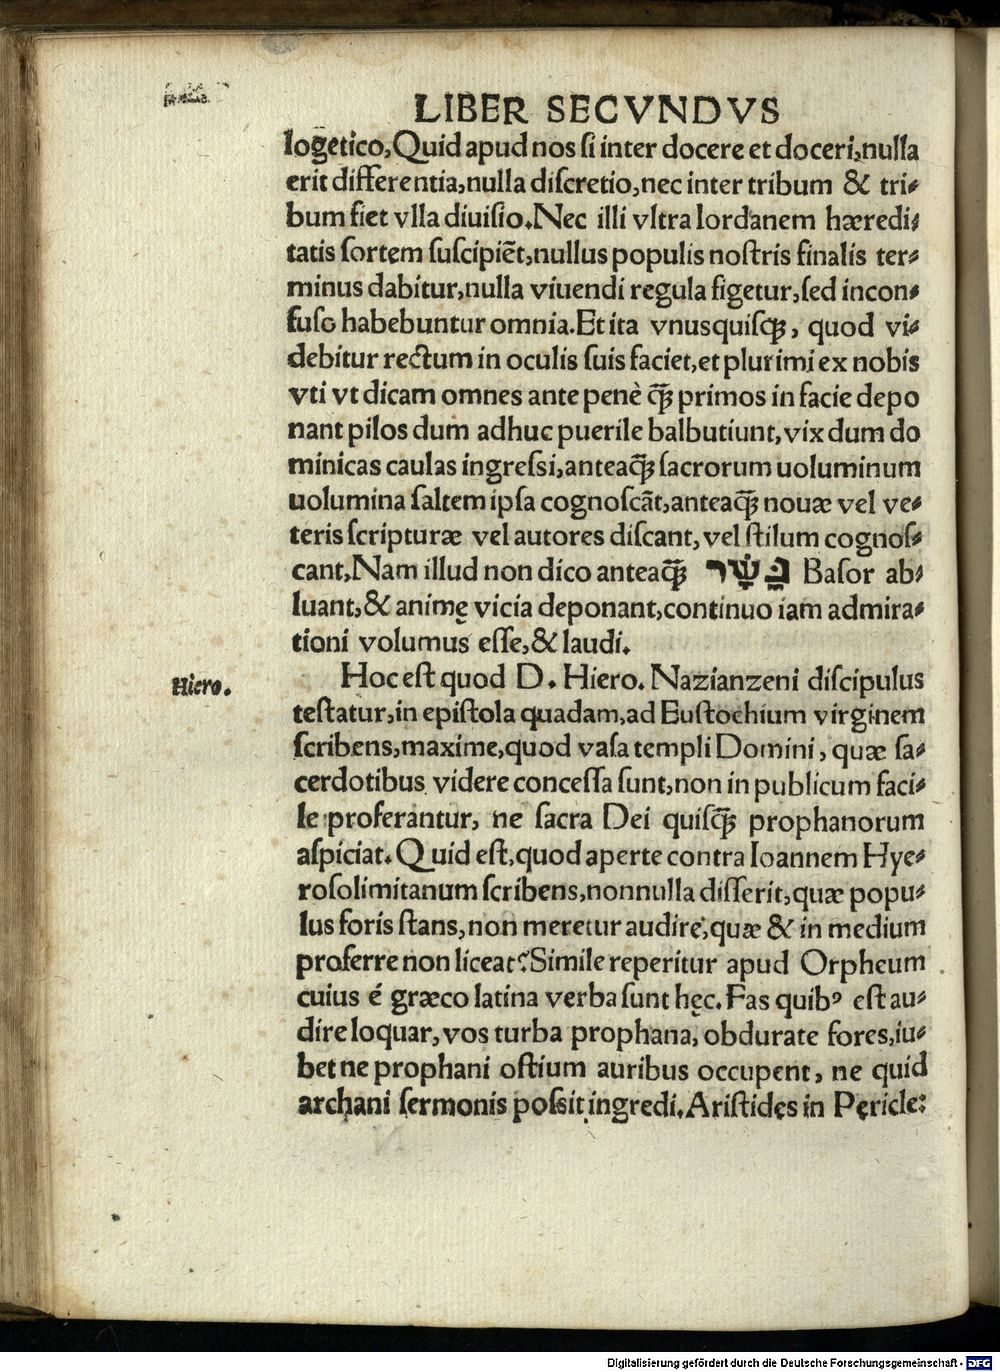 LIBER SECVNDVS
logetico, Quid apud nos si inter docere et doceri, nulla
erit differentia, nulla discretio, nec inter tribum & tri-
bum fiet vlla diuisio. Nec illi vltra Iordanem hæredi-
tatis sortem suscipiẽt, nullus populis nostris finalis ter-
minus dabitur, nulla viuendi regula figetur, sed incon-
fuso habebuntur omnia. Et ita vnusquisq̃ꝫ, quod vi-
debitur rectum in oculis suis faciet, et plurimi ex nobis
vti vt dicam omnes ante penè q̃ꝫ primos in facie depo
nant pilos dum adhuc puerile balbutiunt, vix dum do
minicas caulas ingressi, anteaq̃ꝫ sacrorum uoluminum
uolumina saltem ipsa cognoscãt, anteaq̃ꝫ nouæ vel ve-
teris scripturæ vel autores discant, vel stilum cognos-
cant, Nam illud non dico anteaq̃ꝫ בָּשָׂר Basor ab-
luant, & animę vicia deponant, continuo iam admira-
tioni volumus esse, & laudi.
Hiero.
Hoc est quod D. Hiero. Nazianzeni discipulus
testatur, in epistola quadam, ad Eustochium virginem
scribens, maxime, quod vasa templi Domini, quæ sa-
cerdotibus videre concessa sunt, non in publicum faci-
le proferantur, ne sacra Dei quisq̃ꝫ prophanorum
aspiciat. Quid est, quod aperte contra Ioannem Hye-
rosolimitanum scribens, nonnulla disserit, quæ popu-
lus foris stans, non meretur audire, quæ & in medium
proferre non liceat? Simile reperitur apud Orpheum
cuius é græco latina verba sunt hęc. Fas quibꝰ est au-
dire loquar, vos turba prophana, obdurate fores, iu-
bet ne prophani ostium auribus occupent, ne quid
archani sermonis possit ingredi. Aristides in Pericle:
Digitalisierung gefördert durch die Deutsche Forschungsgemeinschaft - DFG